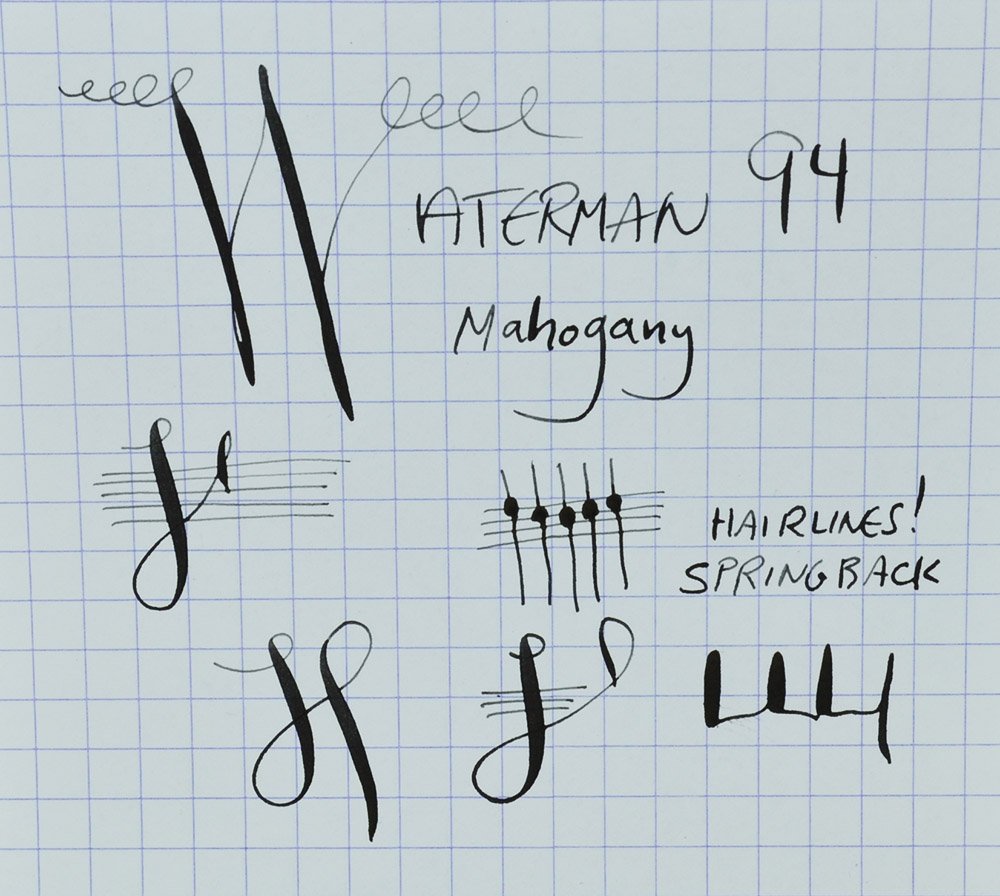 WATERMAN 94
Mahogany
HAIRLINES!
SPRINGBACK